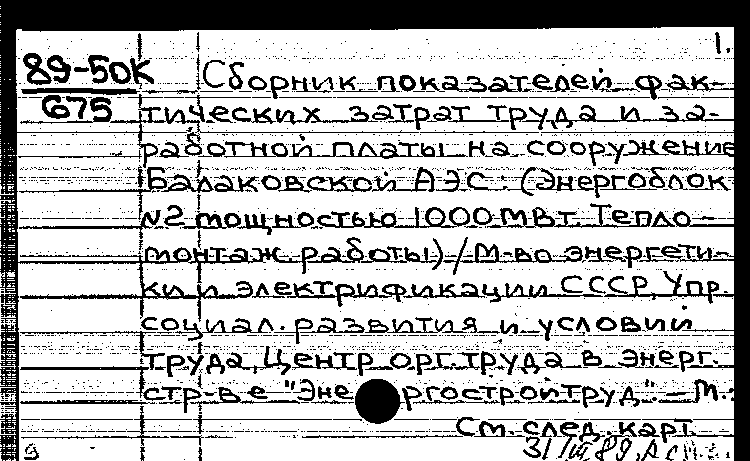 1.
89-50К Сборник показателей фак-
675 тических затрат труда и за-
работной платы на сооружение
Балаковской АЭС: (Энергоблок
№2 мощностью 1000МВт. Тепло-
монтаж. работы) / М-во энергети-
ки и электрификации СССР, Упр.
социал. развития и условий
труда, Центр орг. труда в энерг.
стр-ве "Энергостройтруд". – М.:
См. след. карт.
31/III 89.